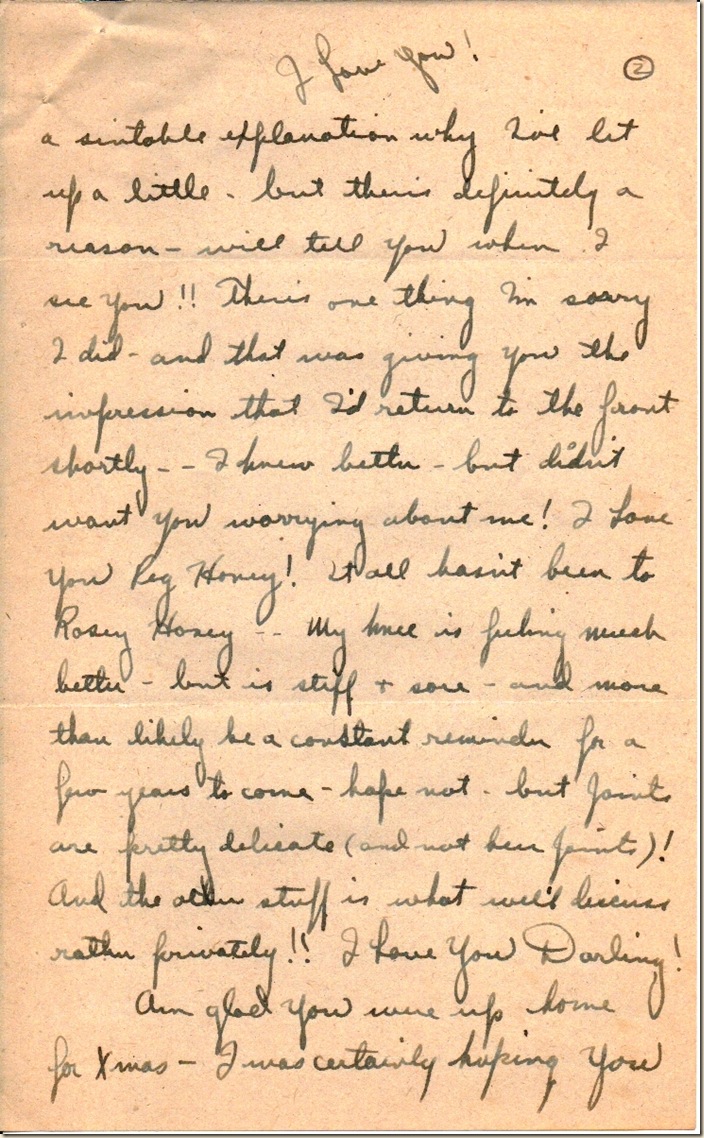 I Love You!
2
a suitable explanation why I've let
up a little - but there's definitely a
reason - will tell you when I
see you!! There's one thing I'm sorry
I did - and that was giving you the
impression that I'd return to the front
shortly - - I knew better - but didn't
want you worrying about me! I Love
You Reg Honey! It all hasn't been to
Rosey Honey -- My knee is feeling much
better - but is stiff + sore - and more
than likely be a constant reminder for a
few years to come - hope not - but joints
are pretty delicate (and not beer joints)!
And the other stuff is what we'll discuss
rather privately!! I Love You Darling!
Am glad you were up home
for Xmas - I was certainly hoping you